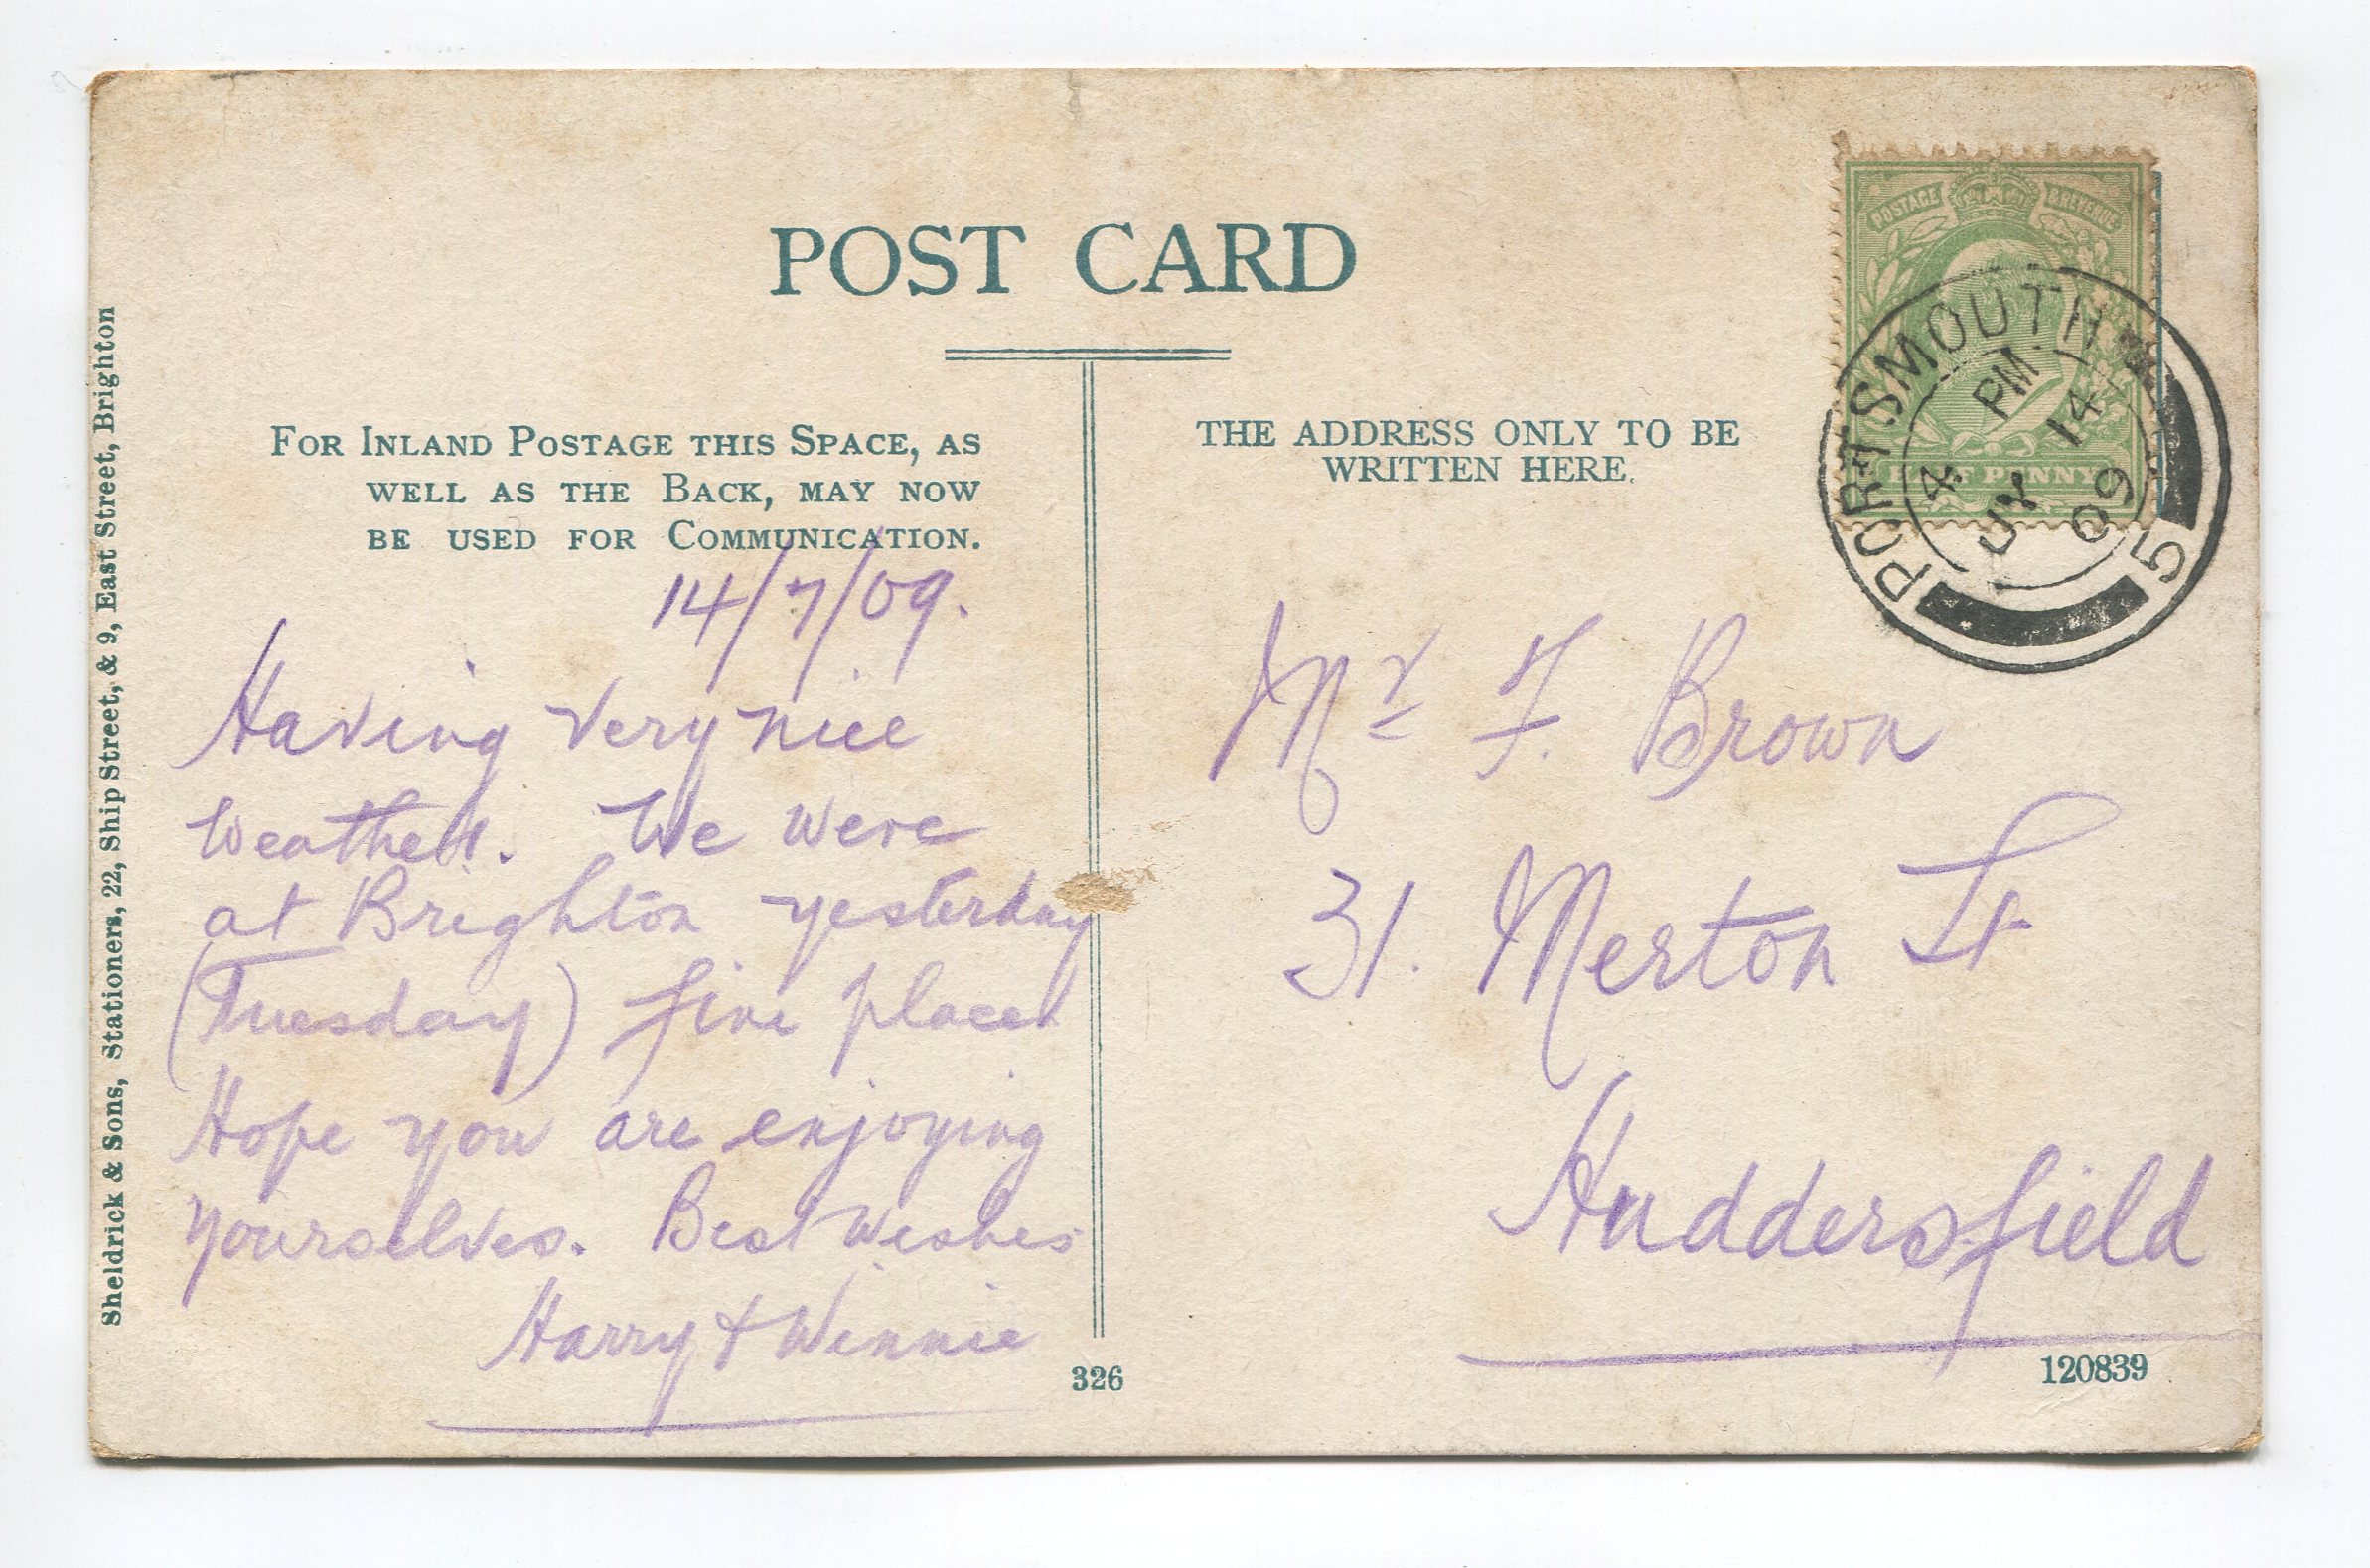 POST CARD
Sheldrick & Sons, Stationers, 22, Ship Street, & 9, East Street, Brighton
FOR INLAND POSTAGE THIS SPACE, AS
WELL AS THE BACK, MAY NOW
BE USED FOR COMMUNICATION.
14/7/09.
Having very nice
weather. We were
at Brighton yesterday
(Tuesday) fine place
Hope you are enjoying
yourselves. Best wishes
Harry & Winnie
326
THE ADDRESS ONLY TO BE
WRITTEN HERE.
POSTAGE & REVENUE
HALF PENNY
PORTSMOUTH
4 PM
JY 14
09
5
Mr F. Brown
31. Merton St
Huddersfield
120839